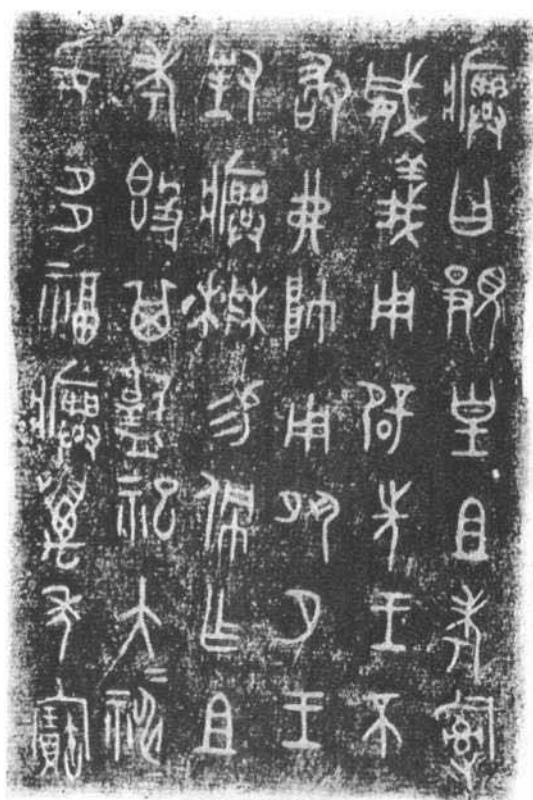 𤼈曰顯皇且考𤔲
威義用辟先王不
敢弗帥用夙夕王
對𤼈楙易佩乍且
考𣪘其祀大=神
妥多福𤼈萬年寶